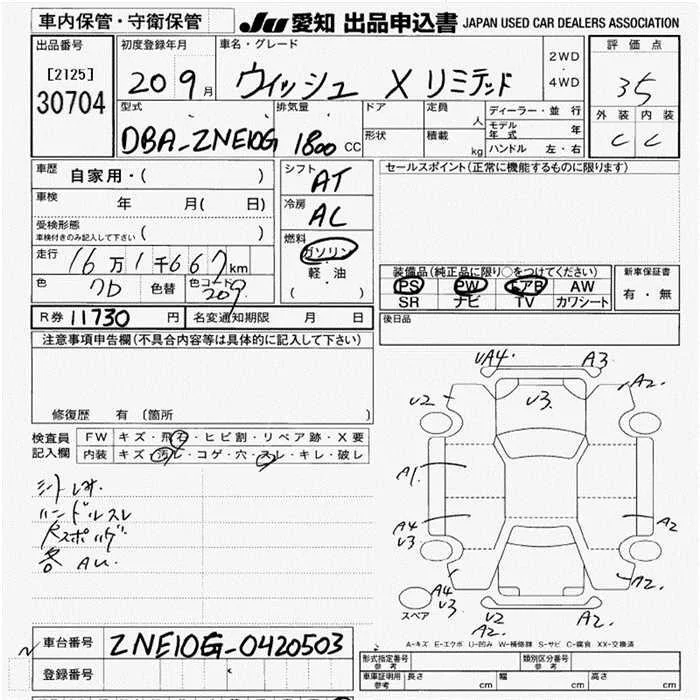 車内保管・守衛保管
JU 愛知 出品申込書 JAPAN USED CAR DEALERS ASSOCIATION
出品番号
[2125]
30704
初度登録年月
20 9月
車名・グレード
ウィッシュ X リミテッド
2WD
・
4WD
評価点
35
外装 内装
C C
型式
DBA-ZNE10G
排気量
1800 CC
ドア
形状
定員
人
積載
kg
ディーラー・並行
モデル年式 年
ハンドル 左・右
車歴
自家用・( )
車検
年 月( 日)
受検形態
車検付きのみ記入して下さい ( )
走行
16万1千667km
色
色替
色コード
209
シフト
AT
冷房
AC
燃料
ガソリン
軽・油
( )
セールスポイント(正常に機能するものに限ります)
装備品(純正品に限り○をつけてください)
PS PW エアB AW
SR ナビ TV カワシート
新車保証書
有・無
後日品
R券 11730 円
名変通知期限 月 日
注意事項申告欄(不具合内容等は具体的に記入して下さい)
修復歴 有 (箇所 )
検査員記入欄
FW キズ・飛石・ヒビ割・リペア跡・X要
内装 キズ・汚レ・コゲ・穴・スレ・キレ・破レ
ハンドルスレ
UA4. A3
U2 U3. A2.
A1
A4
U3
A2
A4
U3
スペア
U2
A2.
A2.
A2.
A-キズ E-エクボ U-凹み W-補修跡 S-サビ C-腐食 XX-交換済
車台番号
ZNE10G-0420503
登録番号
形式指定番号
参考
類別区分番号
参考
車庫証明用
参考
長さ cm
幅 cm
高さ cm